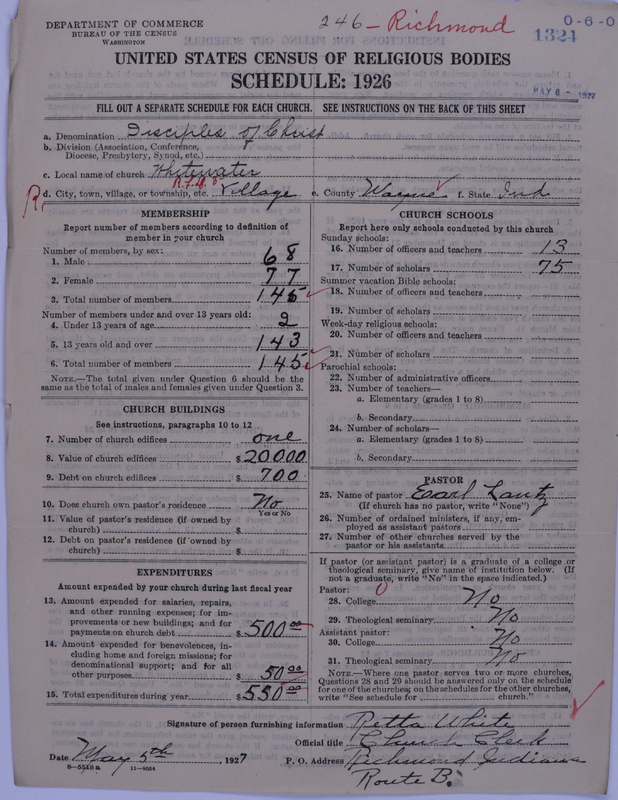 246 - Richmond
0-6-0
1324
MAY 6 - 1927
DEPARTMENT OF COMMERCE
BUREAU OF THE CENSUS
WASHINGTON
UNITED STATES CENSUS OF RELIGIOUS BODIES
SCHEDULE: 1926
FILL OUT A SEPARATE SCHEDULE FOR EACH CHURCH. SEE INSTRUCTIONS ON THE BACK OF THIS SHEET
a. Denomination Disciples of Christ
b. Division (Association, Conference, Diocese, Presbytery, Synod, etc.)
c. Local name of church Whitewater
d. City, town, village, or township, etc. Village e. County Wayne f. State Ind
MEMBERSHIP
Report number of members according to definition of
member in your church
Number of members, by sex:
1. Male 68
2. Female 77
3. Total number of members 145
Number of members under and over 13 years old:
4. Under 13 years of age 2
5. 13 years old and over 143
6. Total number of members 145
NOTE.—The total given under Question 6 should be the
same as the total of males and females given under Question 3.
CHURCH BUILDINGS
See instructions, paragraphs 10 to 12
7. Number of church edifices one
8. Value of church edifices $20,000
9. Debt on church edifices $700
10. Does church own pastor's residence No
Yes or No
11. Value of pastor's residence (if owned by
church) $
12. Debt on pastor's residence (if owned by
church) $
EXPENDITURES
Amount expended by your church during last fiscal year
13. Amount expended for salaries, repairs,
and other running expenses; for im-
provements or new buildings; and for
payments on church debt $500.00
14. Amount expended for benevolences, in-
cluding home and foreign missions; for
denominational support; and for all
other purposes $50.00
15. Total expenditures during year $550.00
CHURCH SCHOOLS
Report here only schools conducted by this church
Sunday schools:
16. Number of officers and teachers 13
17. Number of scholars 75
Summer vacation Bible schools:
18. Number of officers and teachers
19. Number of scholars
Week-day religious schools:
20. Number of officers and teachers
21. Number of scholars
Parochial schools:
22. Number of administrative officers
23. Number of teachers—
a. Elementary (grades 1 to 8)
b. Secondary
24. Number of scholars—
a. Elementary (grades 1 to 8)
b. Secondary
PASTOR
25. Name of pastor Earl Lantz
(If church has no pastor, write "None")
26. Number of ordained ministers, if any, em-
ployed as assistant pastors
27. Number of other churches served by the
pastor or his assistants
If pastor (or assistant pastor) is a graduate of a college or
theological seminary, give name of institution below. (If
not a graduate, write "No" in the space indicated.)
Pastor: 0
28. College No
29. Theological seminary No
Assistant pastor:
30. College No
31. Theological seminary No
NOTE.—Where one pastor serves two or more churches,
Questions 28 and 29 should be answered only on the schedule
for one of the churches; on the schedules for the other churches,
write "See schedule for church."
Signature of person furnishing information Retta White
Official title Church Clerk
Date May 5th, 1927 P. O. Address Richmond Indiana
8-5518a 11-9034 Route B.